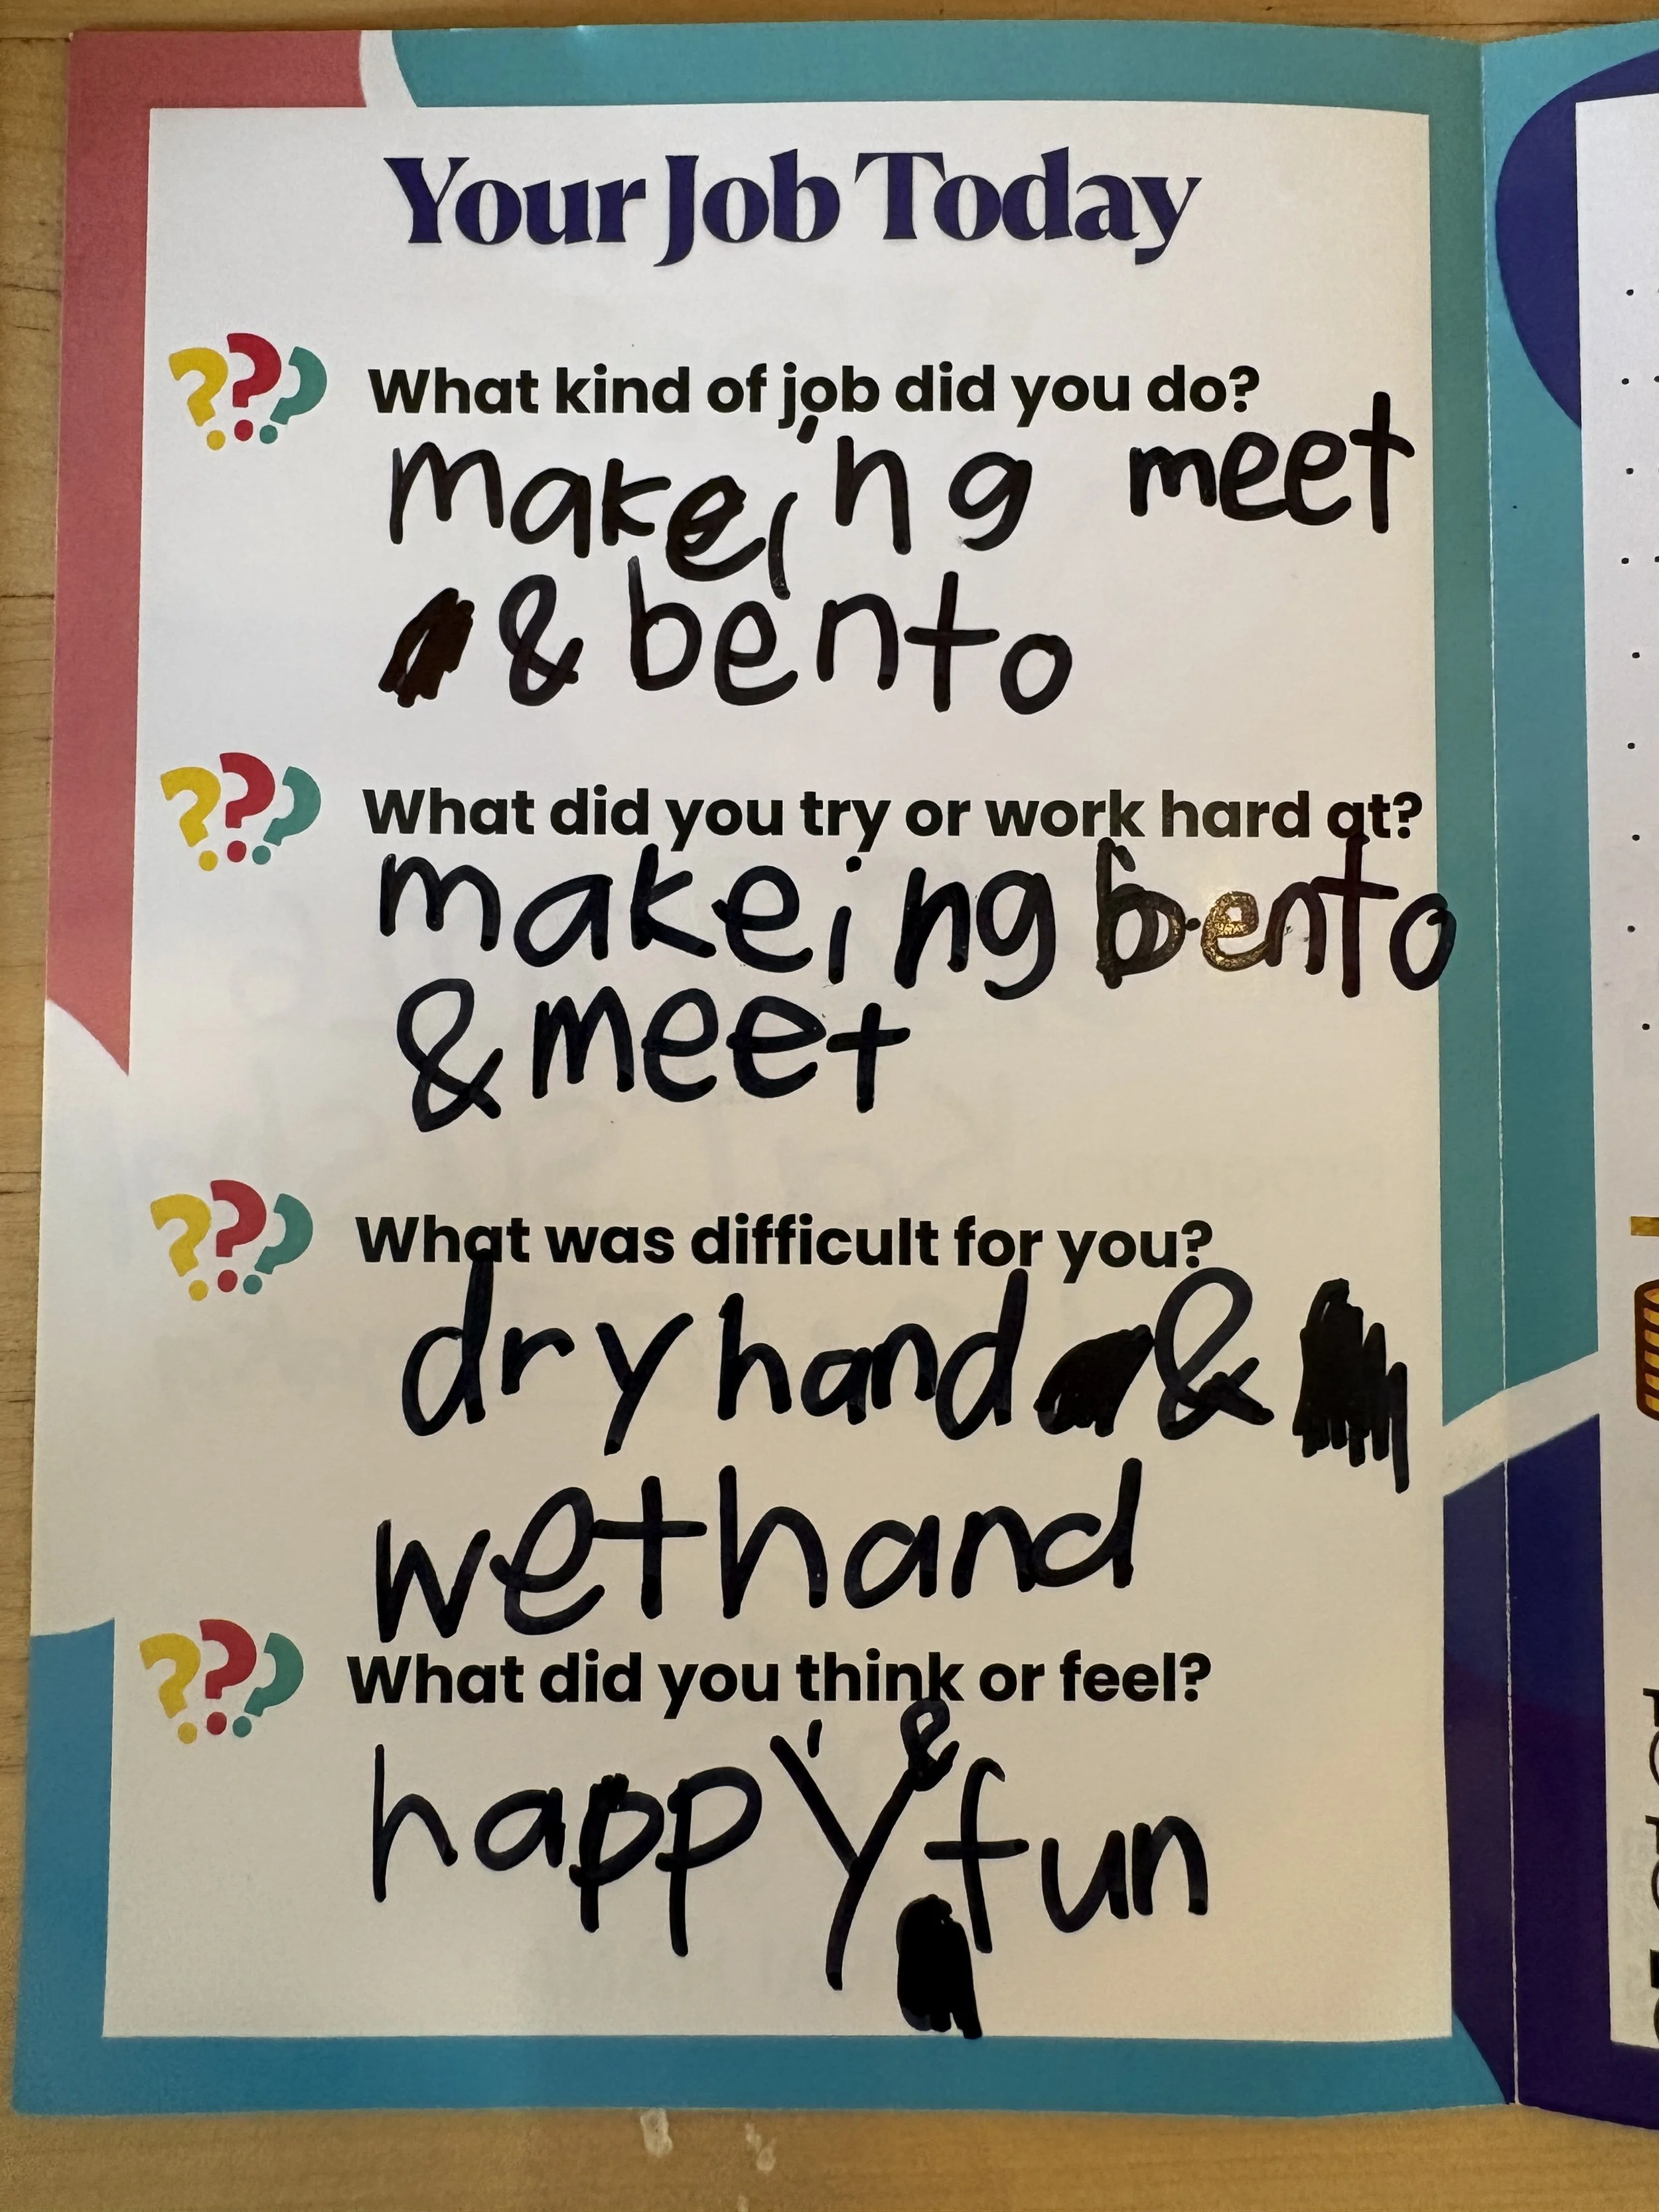 Your Job Today
??? What kind of job did you do?
makeing meet
& bento
??? What did you try or work hard at?
makeing bento
& meet
??? What was difficult for you?
dry hand &
wet hand
??? What did you think or feel?
happy & fun